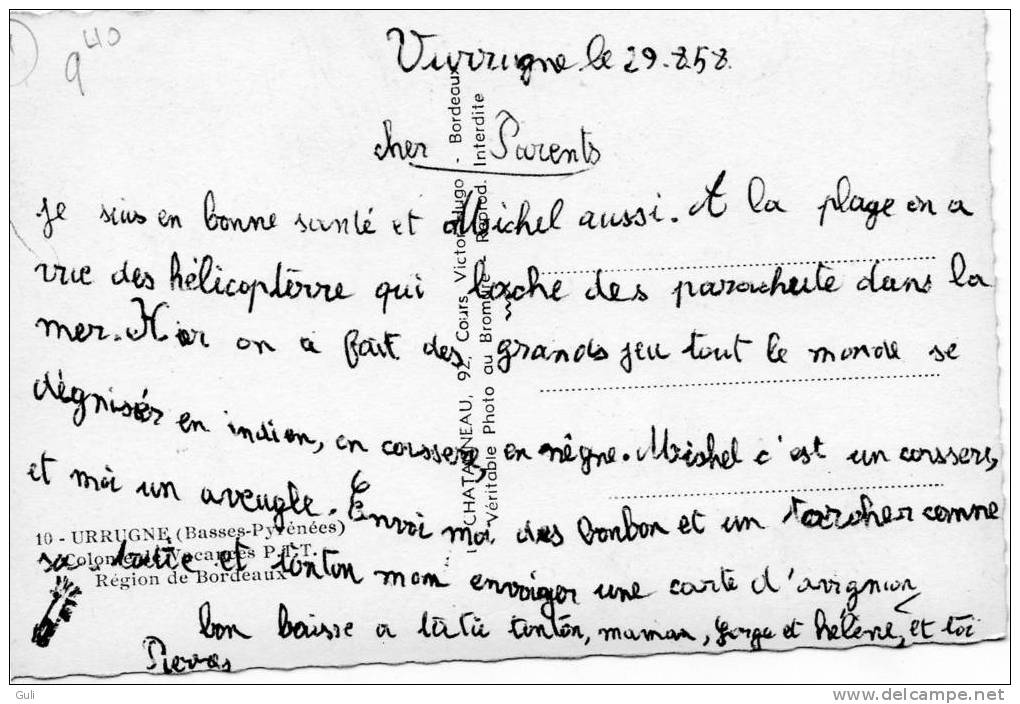 9 40
Vurrugne le 29.8.58.
cher Parents
je suis en bonne santé et Michel aussi. A la plage on a
vue des hélicoptèrre qui lache des parachute dans la
mer. Hier on a fait des grands jeu tout le monde se
déguisér en indien, en corssere, en nêgne. Michel c'est un corssers,
et moi un aveugle. Envoi moi des bonbon et un torcher comne
sa. tatie et tonton mom envoiger une carte d'avignion
bon baisse a tātā tontōn, maman, gorge et hélène, et toi
10 - URRUGNE (Basses-Pyrénées)
Colonie de Vacances P.T.T.
Région de Bordeaux
CHATAGNEAU, 92, Cours Victor-Hugo - Bordeaux
Véritable Photo au Bromure - Reprod. Interdite
Guli
www.delcampe.net